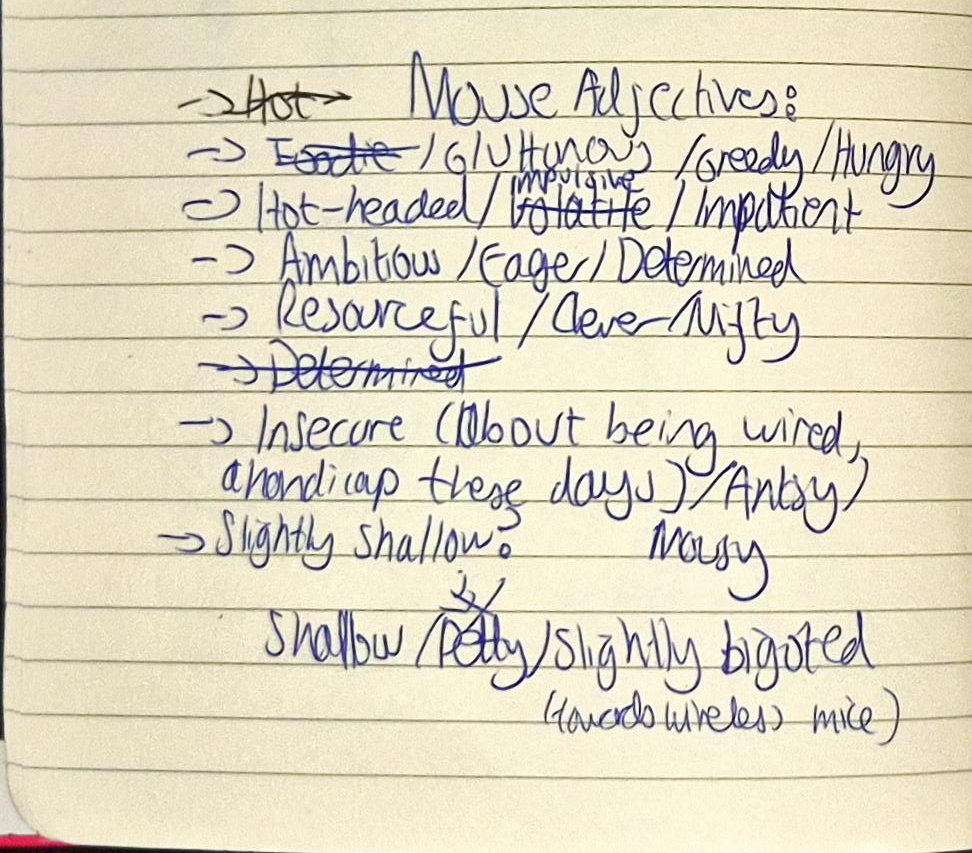 -> Hot Mouse Adjectives:
-> Foodie / Gluttunous / Greedy / Hungry
impulsive
-> Hot-headed / Volatile / Impatient
-> Ambitious / Eager / Determined
-> Resourceful / Clever / Nifty
-> Determined
-> Insecure (About being wired,
a handicap these days) / Antsy /
-> Slightly shallow? Mousy
Shallow / Petty / Slightly bigoted
(towards wireless mice)